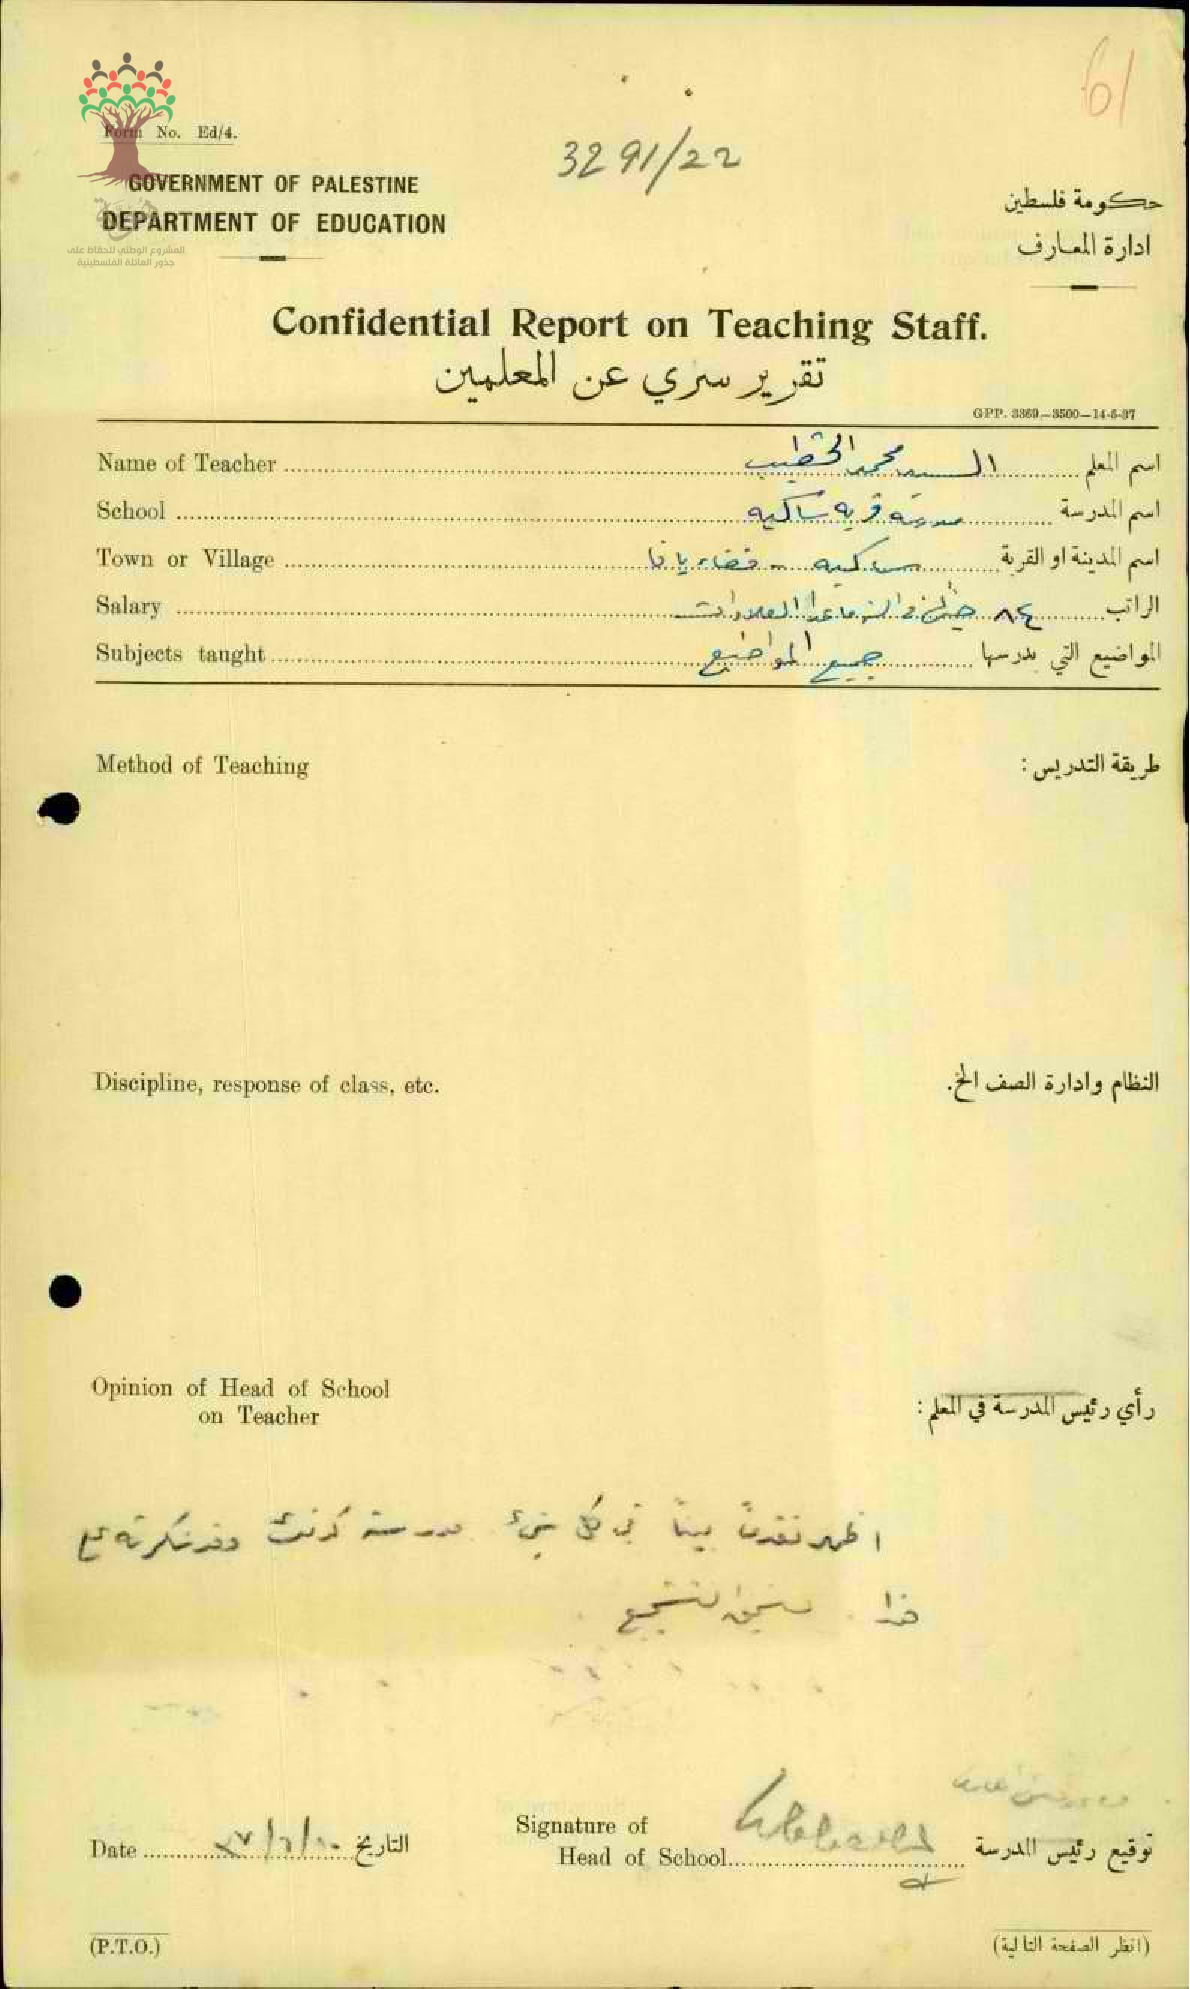 61
3291/22
Form No. Ed/4.
GOVERNMENT OF PALESTINE
DEPARTMENT OF EDUCATION
حكومة فلسطين
ادارة المعارف
هوية
المشروع الوطني للحفاظ على
جذور العائلة الفلسطينية
Confidential Report on Teaching Staff.
تقرير سري عن المعلمين
GPP. 3369.—3500—14-6-37
Name of Teacher السيد محمد الخطيب اسم المعلم
School مدرسة قرية ساكيه اسم المدرسة
Town or Village ساكيه - قضاء يافا اسم المدينة او القرية
Salary ٨٤ في السنة ما عدا العلاوات الراتب
Subjects taught جميع المواضيع المواضيع التي يدرسها
Method of Teaching طريقة التدريس :
Discipline, response of class, etc. النظام وادارة الصف الخ.
Opinion of Head of School رأي رئيس المدرسة في المعلم :
on Teacher
اظهر تقدماً بيناً في كل شيء وقد شكرته على
هذا . يستحق التشجيع .
Signature of
Head of School توقيع رئيس المدرسة
Date التاريخ
(P.T.O.) (انظر الصفحة التالية)